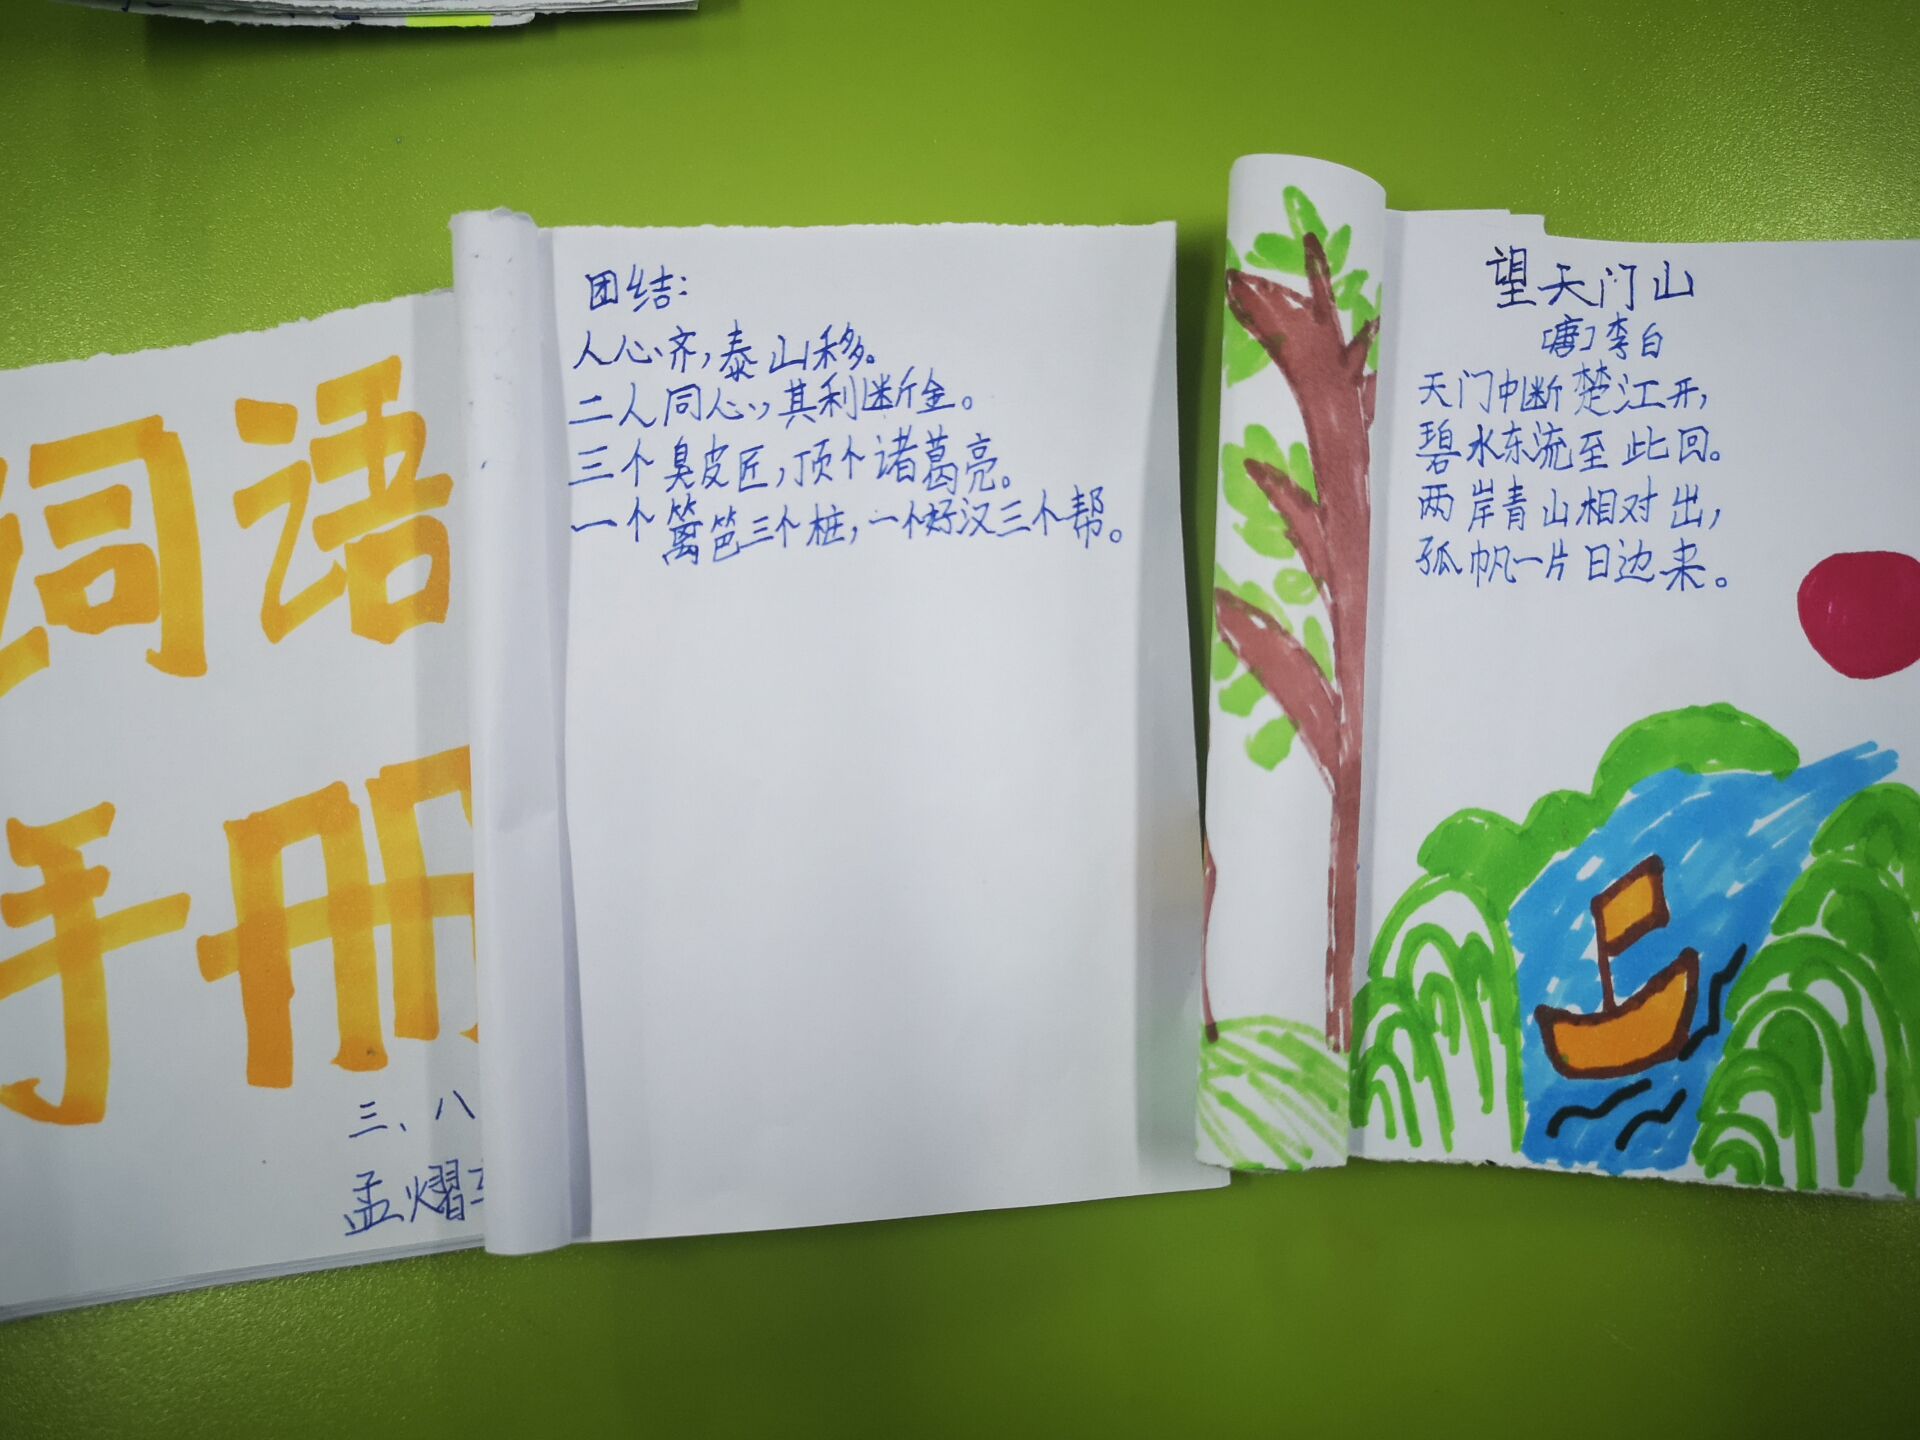 词语
手册
三、八
孟熠
团结:
人心齐,泰山移。
二人同心,其利断金。
三个臭皮匠,顶个诸葛亮。
一个篱笆三个桩,一个好汉三个帮。
望天门山
[唐]李白
天门中断楚江开,
碧水东流至此回。
两岸青山相对出,
孤帆一片日边来。